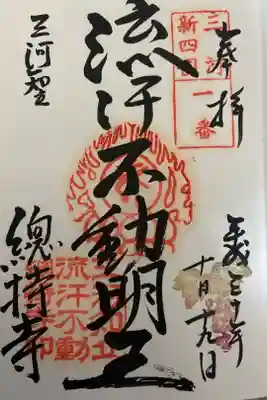 奉拝
三河
新四国
一番
流汗不動明王
平成三十年
十月十九日
三河知立
總持寺
流汗不動